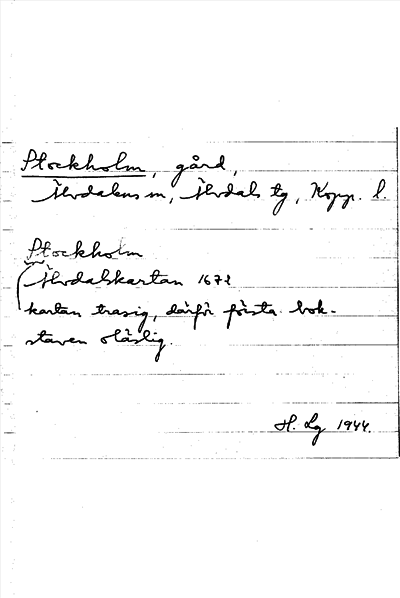 Stockholm, gård,
Älvdalens sn, Älvdals tg, Kopp. l.
Stockholm
(Älvdalskartan 1672
kartan trasig, därför första bok-
staven oläslig.
H. Lg 1944.